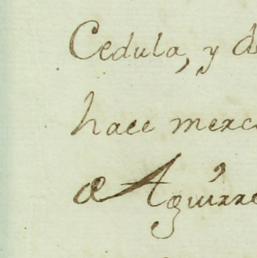 Cedula, y d
hace merc
a Aguirre